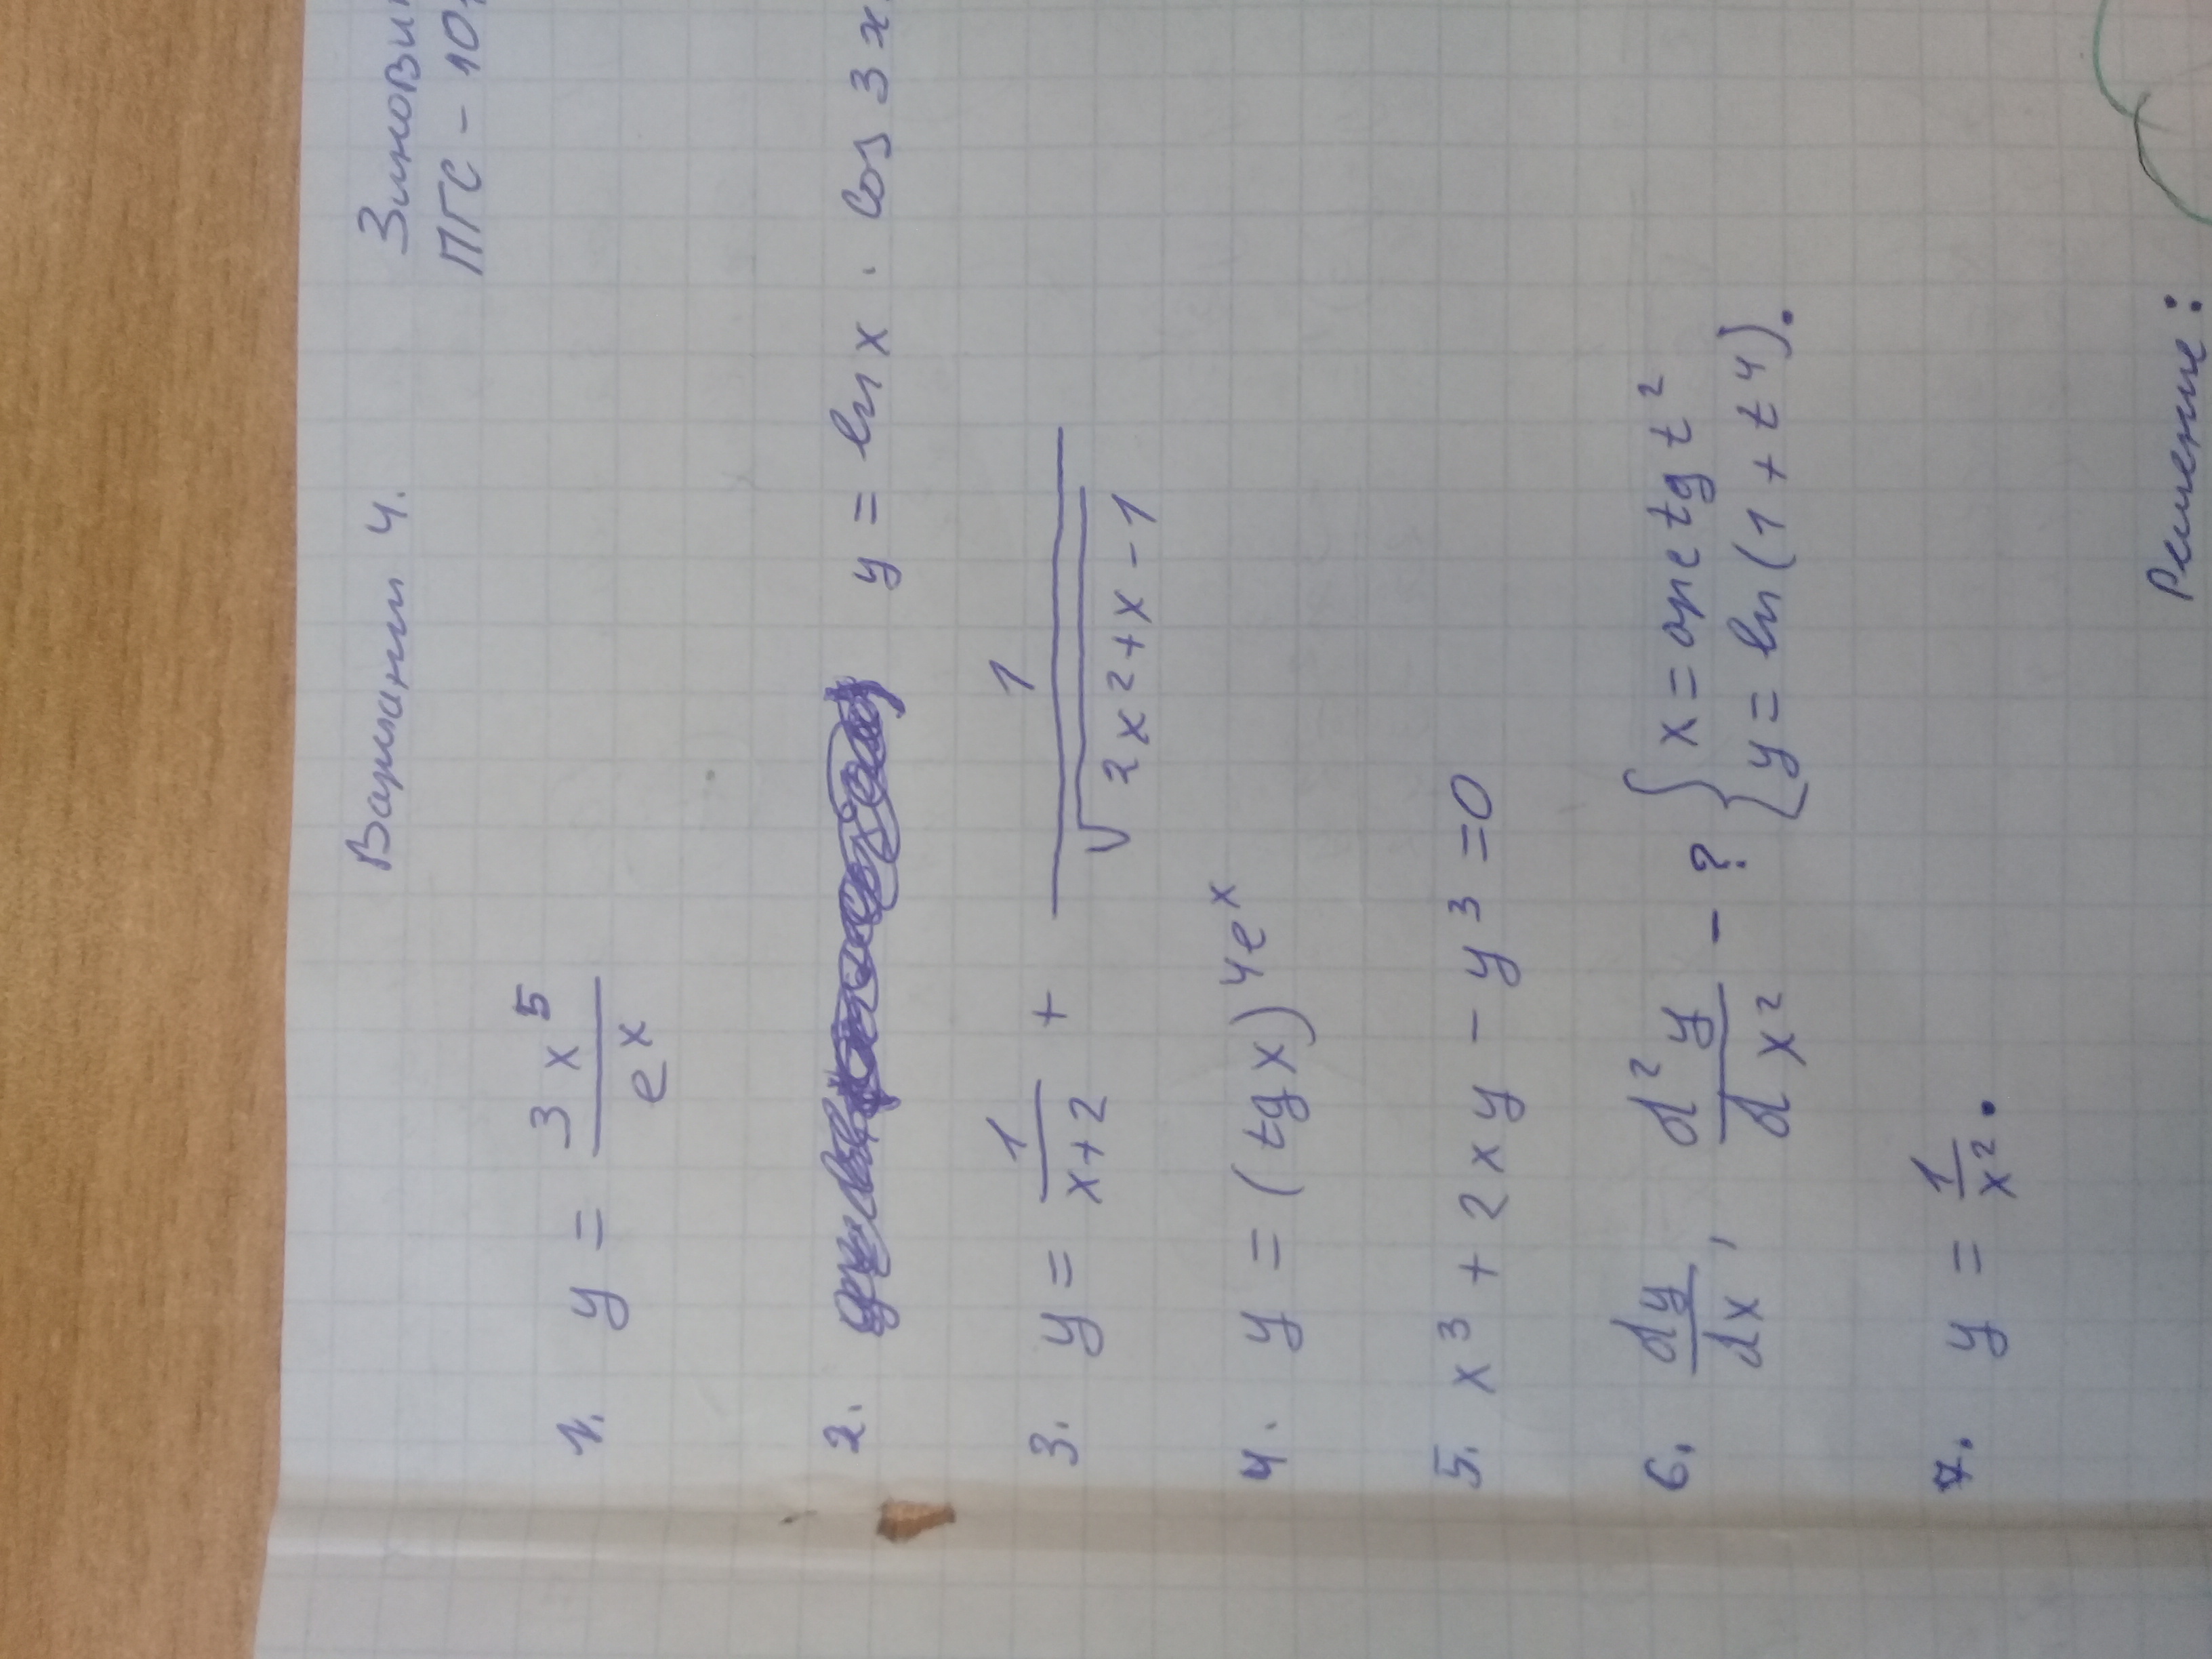 Вариант 4.
Зинови
ПГС - 10
1. y = 3x⁵ / eˣ
2. y = ln x · cos 3x
3. y = 1/(x+2) + 1/√(2x²+x-1)
4. y = (tg x)^(4eˣ)
5. x³ + 2xy - y³ = 0
6. dy/dx, d²y/dx² - ? { x = arctg t²
y = ln(1 + t⁴).
7. y = 1/x².
Решение: